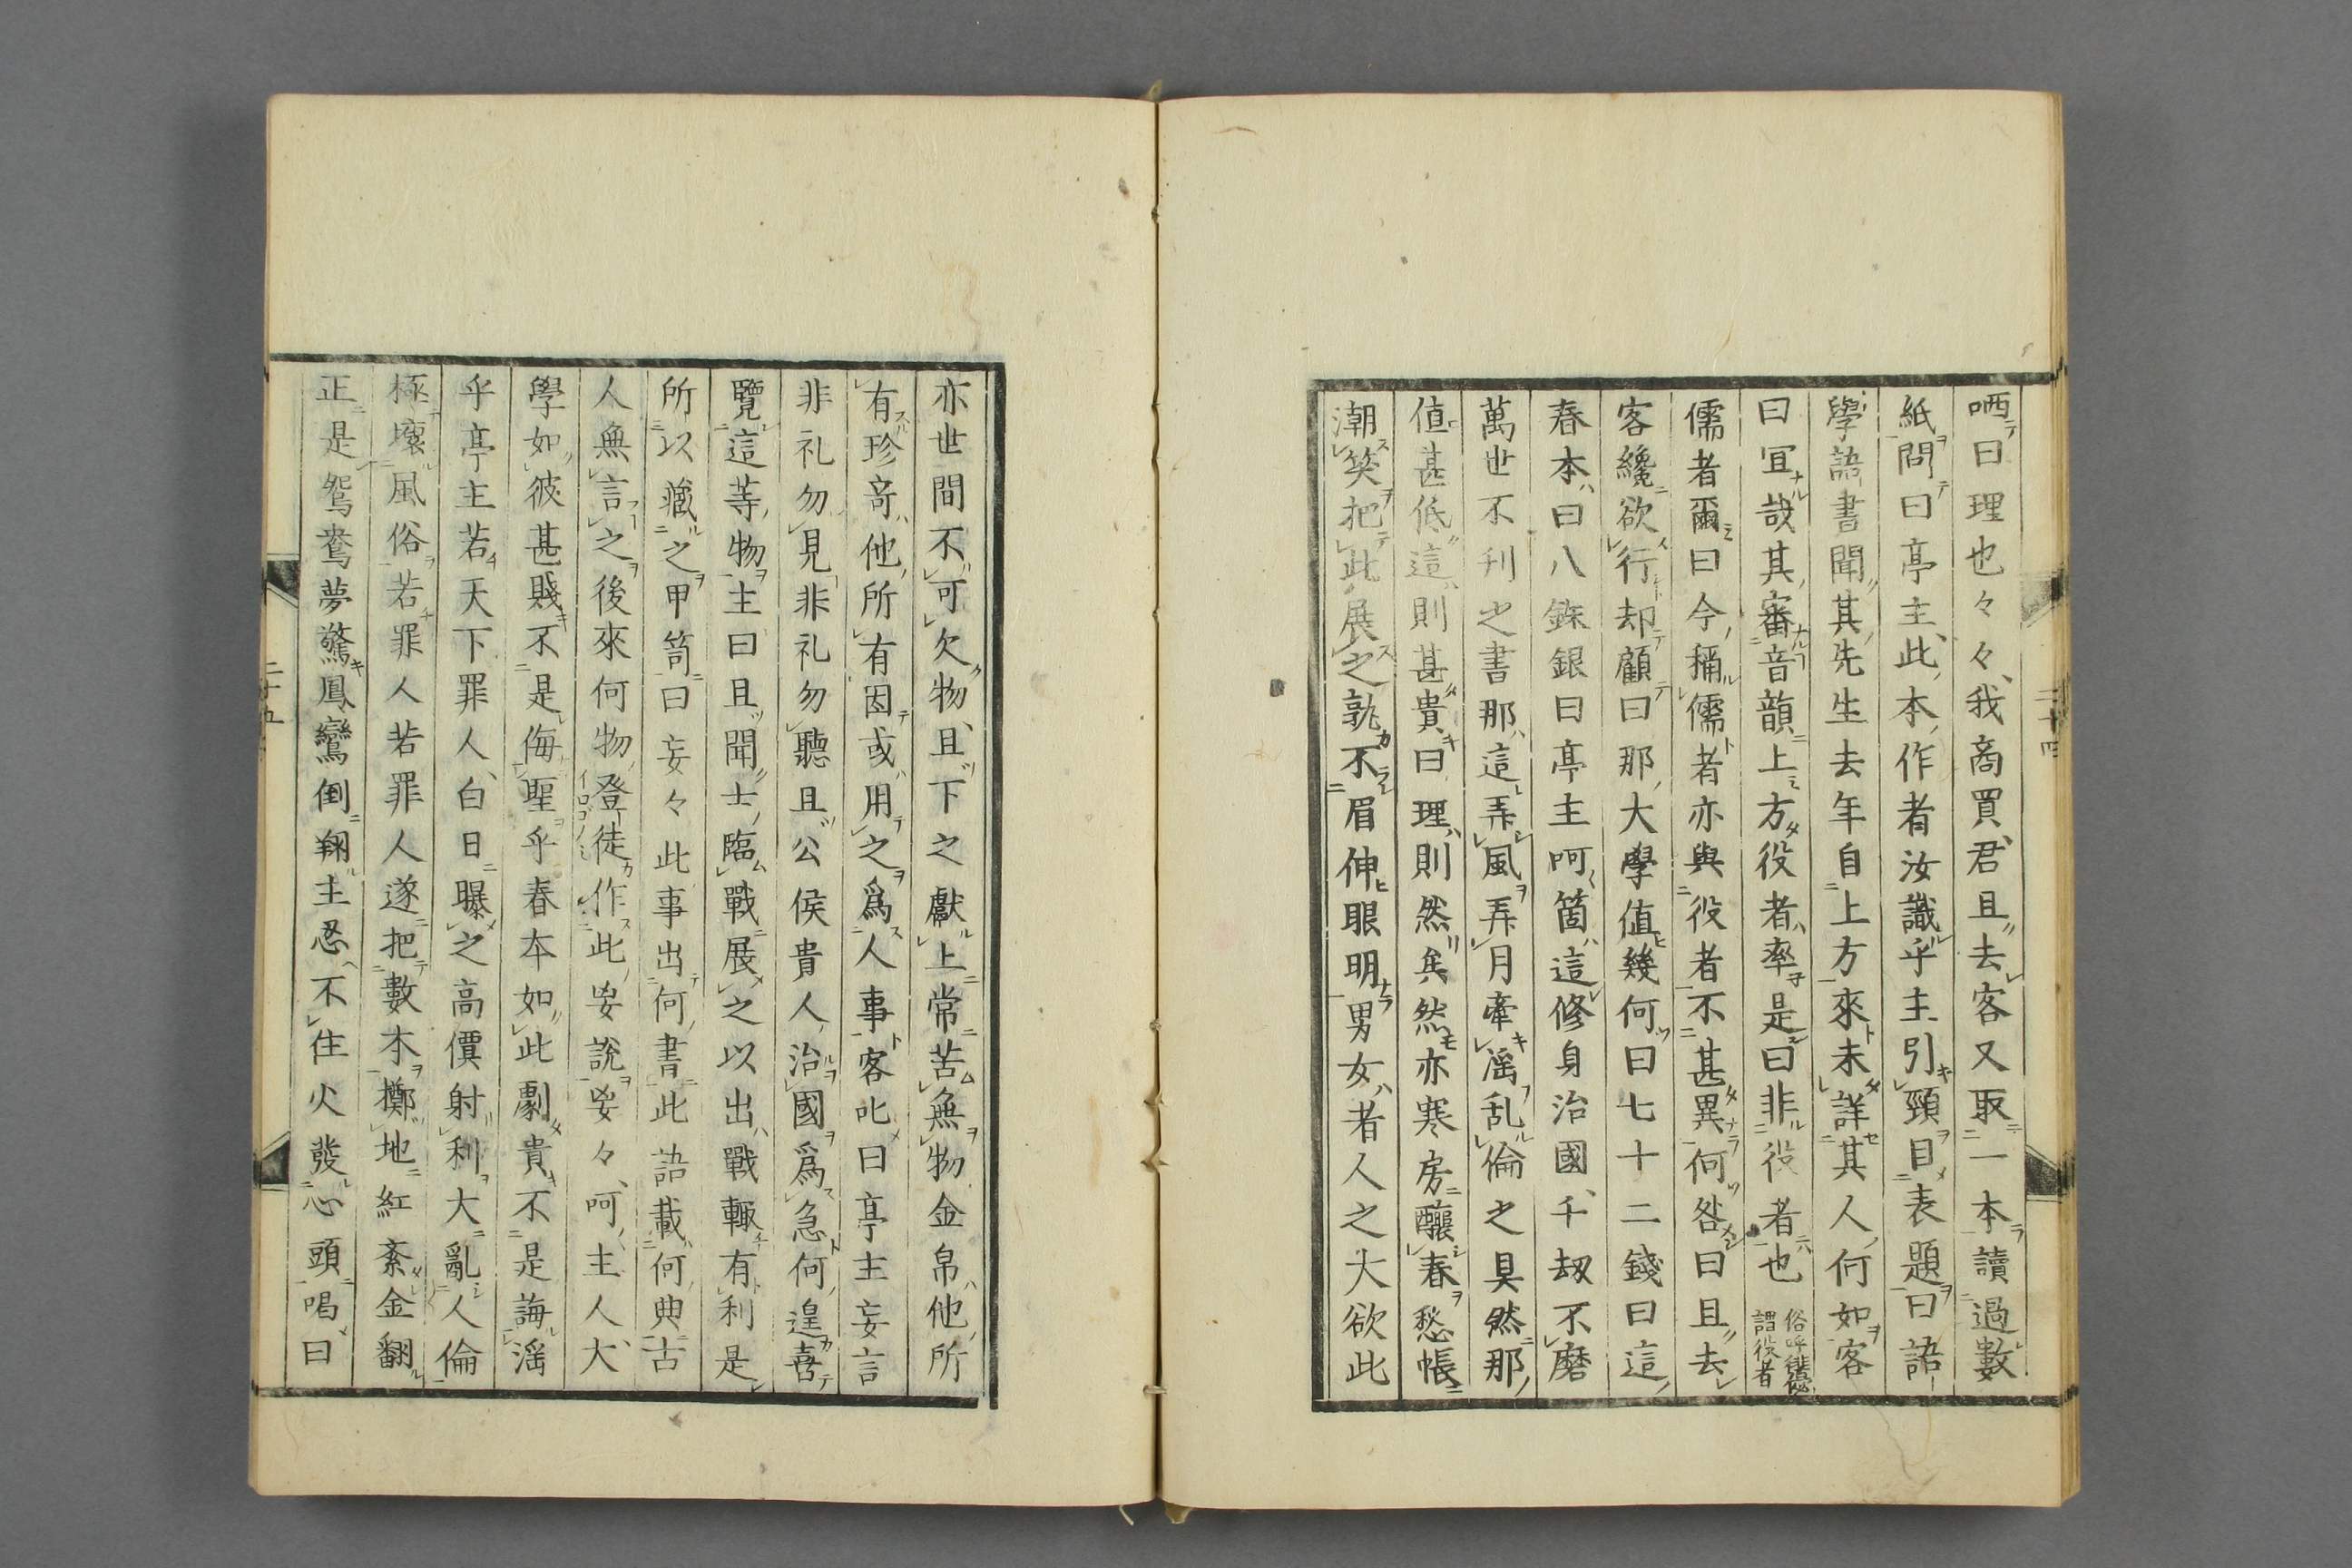 哂曰理也々々我商買君且去客又取一本讀過數
紙問曰亭主此本作者汝識乎主引頸目表題曰語
學語書聞其先生去年自上方來未詳其人何如客
曰冝哉其審音韻上方役者率是曰非役者也
俗呼
謂役者
儒者爾曰今稱儒者亦與役者不甚異何咎曰且去
客纔欲行却顧曰那大學值幾何曰七十二錢曰這
春本曰八銖銀曰亭主呵箇這修身治國千刼不磨
萬世不刊之書那這弄風弄月牽滛乱倫之具然那
值甚低這則甚貴曰理則然矣然亦寒房釀春愁帳
潮笑把此展之孰不眉伸眼明男女者人之大欲此
二十四
亦世間不可欠物且下之獻上常苦無物金帛他所
有珍竒他所有因或用之爲人事客叱曰亭主妄言
非礼勿見非礼勿聽且公侯貴人治國爲急何遑喜
覽這等物主曰且聞士臨戰展之以出戰輙有利是
所以藏之甲笥曰妄々此事出何書此語載何典古
人無言之後來何物登徒作此妄說妄々呵主人大
學如彼甚賤不是侮聖乎春本如此劇貴不是誨滛
乎亭主若天下罪人白日曝之高價射利大亂人倫
極壞風俗若罪人若罪人遂把數本擲地紅紊金翻
正是鴛鴦夢驚鳳鸞倒翔主忍不住火發心頭喝曰
二十五